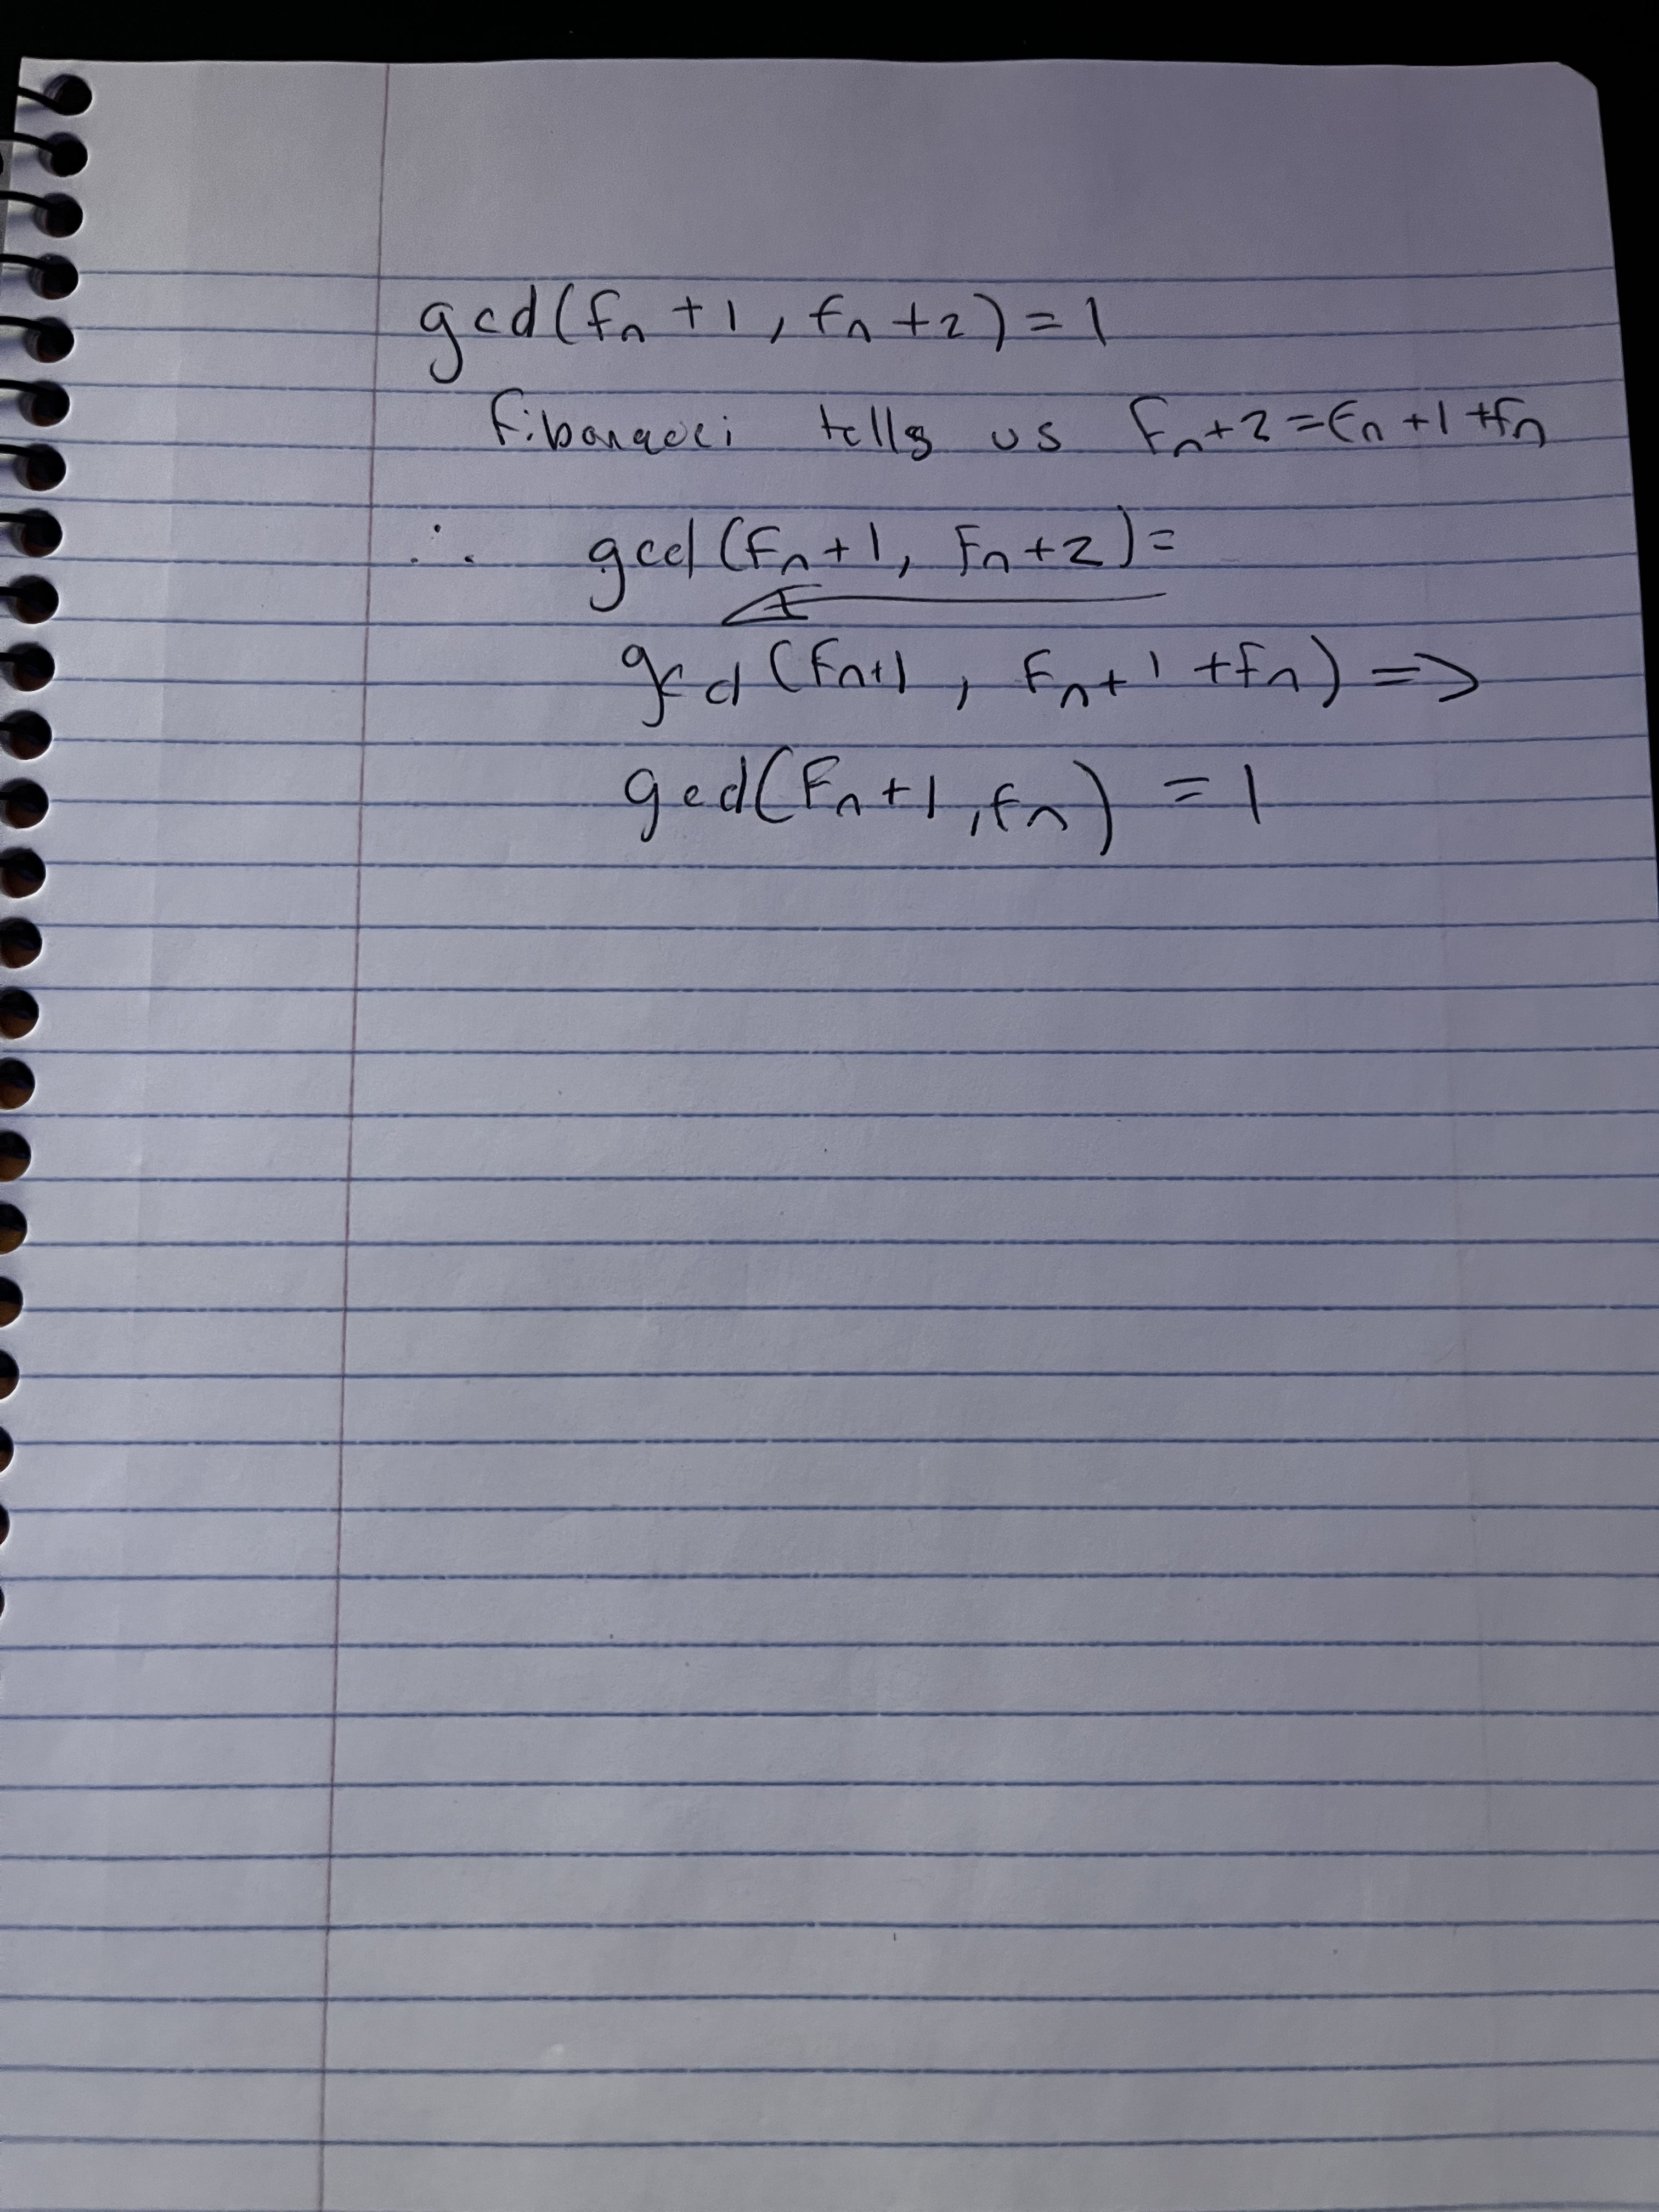 gcd(fn + 1, fn + 2) = 1
Fibonacci tells us Fn + 2 = Fn + 1 + fn
∴ gcd(Fn + 1, Fn + 2) =
gcd(Fn+1, Fn + 1 + fn) =>
gcd(Fn + 1, fn) = 1